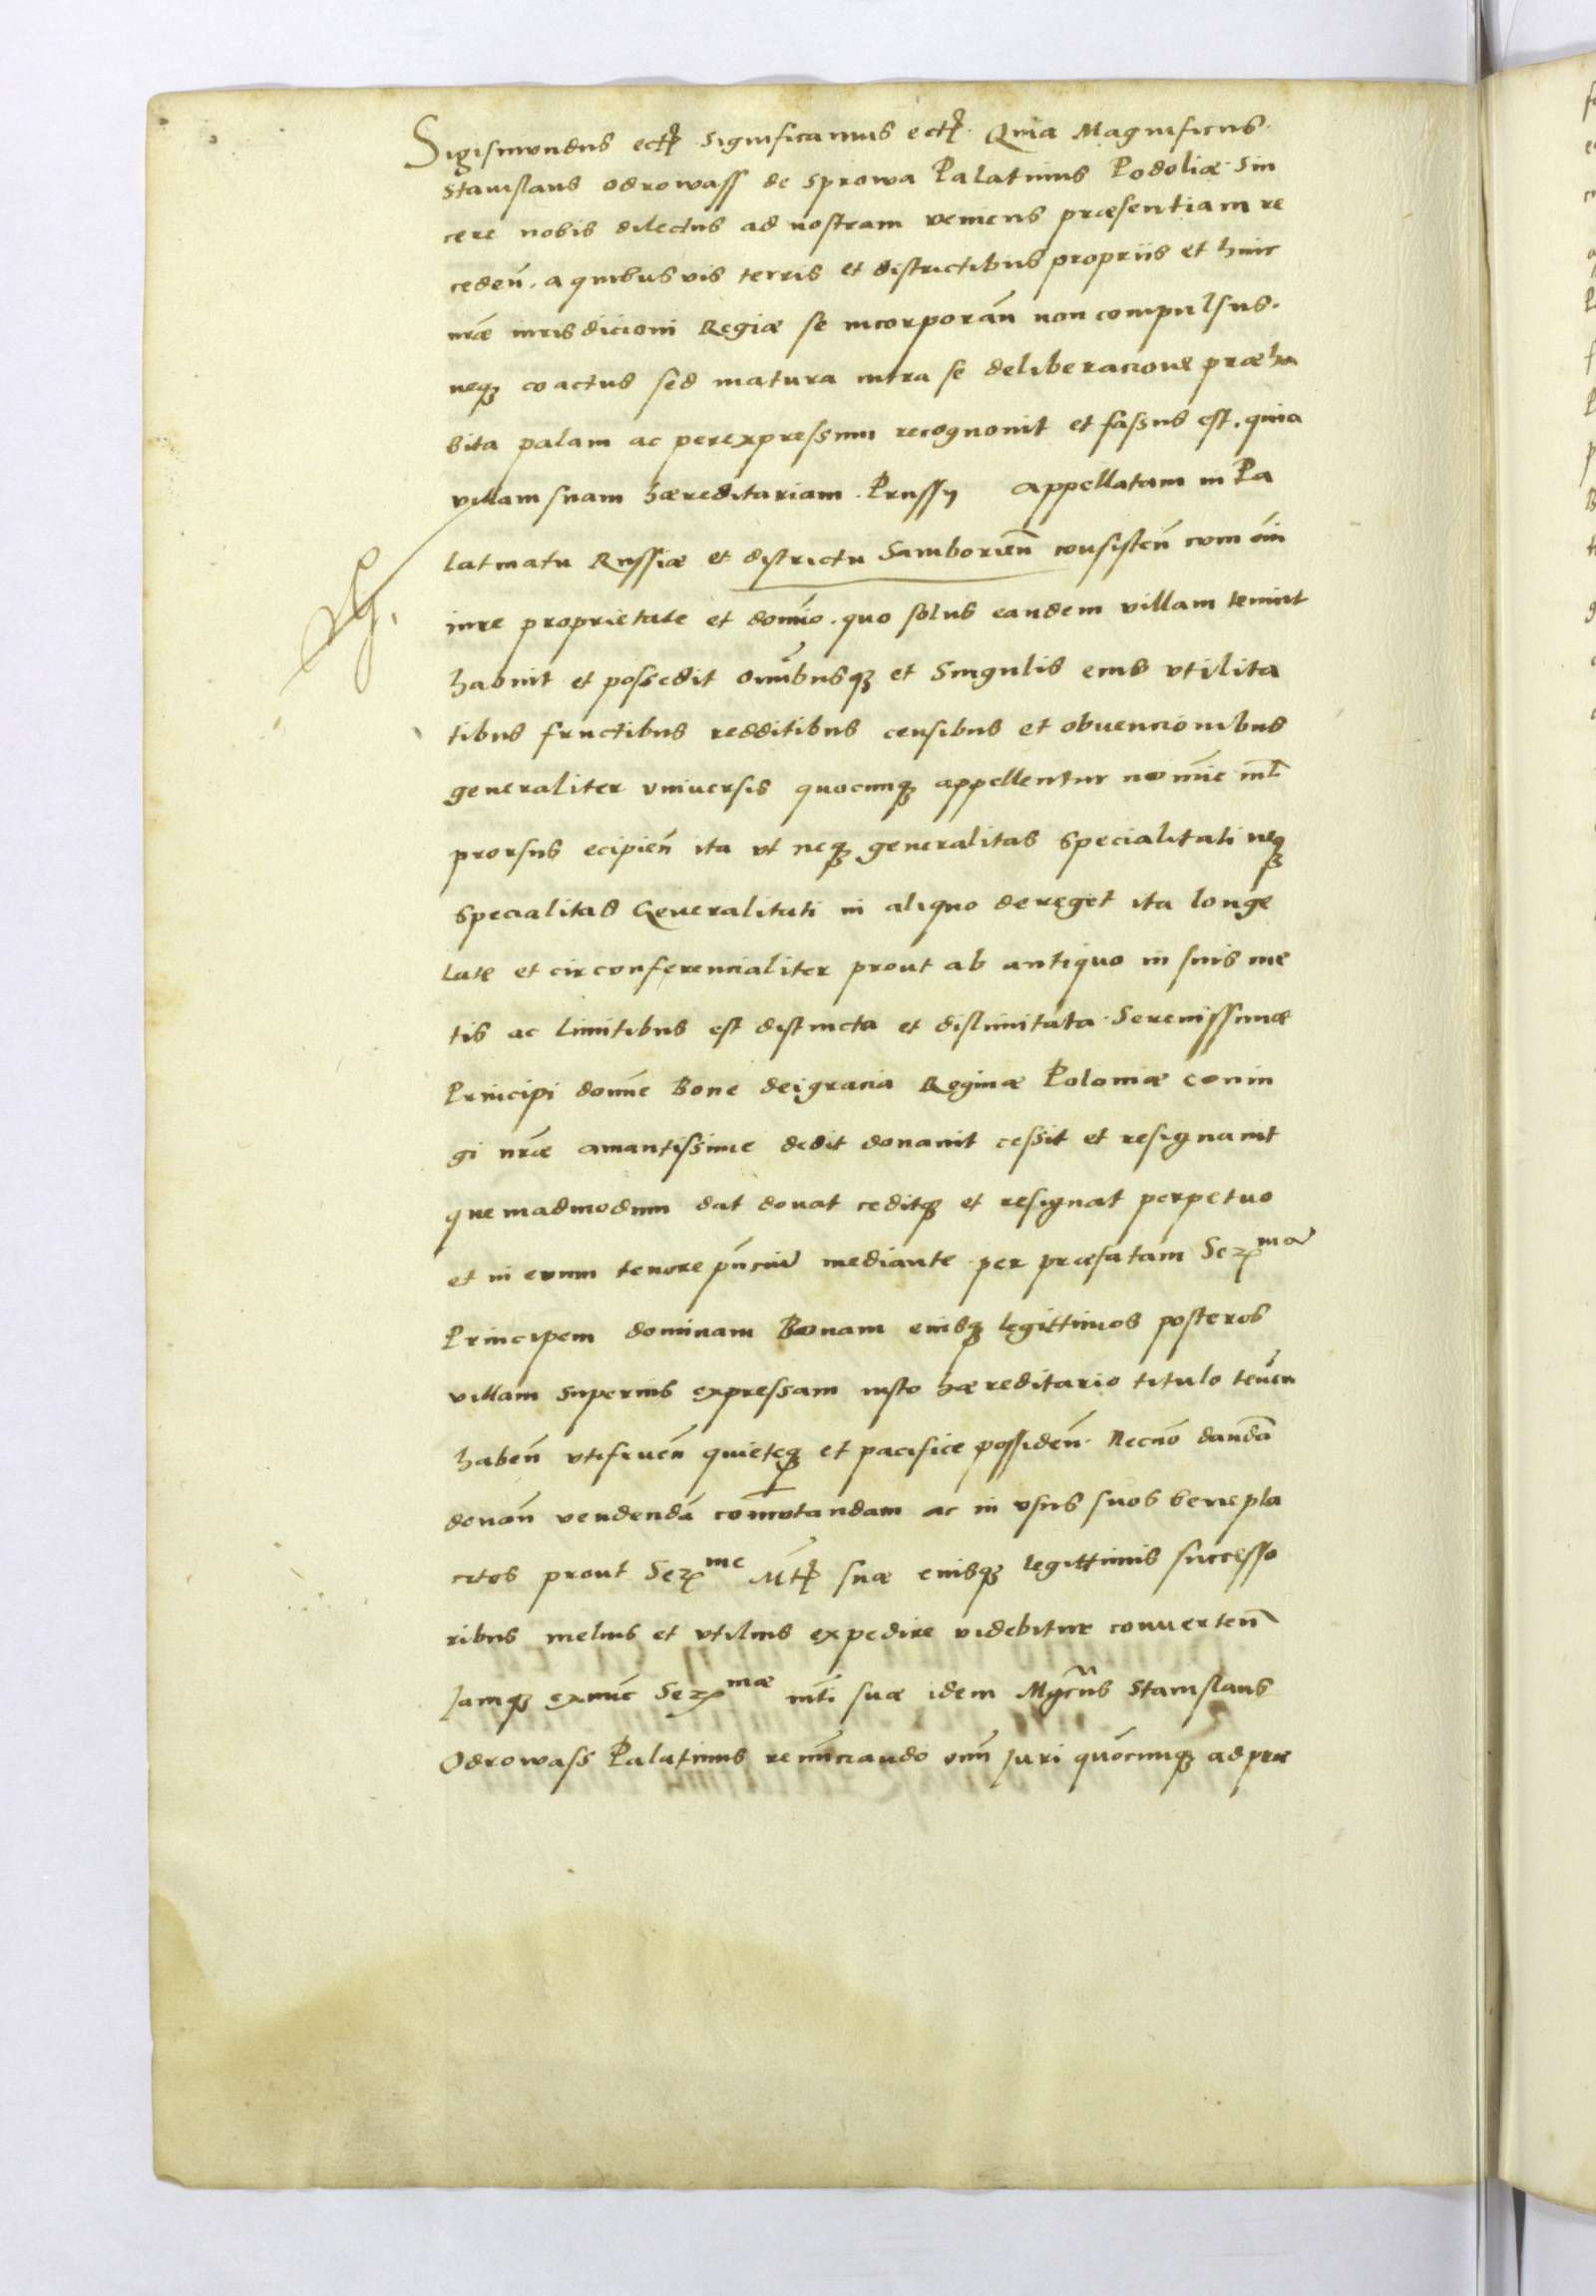 Sigismundus ect̃ Significamus ect̃. Quia Magnificus.
Stanislaus odrowass de Sprowa Palatinus Podoliæ. Sin
cere nobis dilectus ad nostram veniens præsentiam re
ceden̄. a quibus vis terris et districtibus propriis et huic
nr̃æ iurisdicioni Regiæ se incorporan̄ non compulsus.
neqꝫ coactus sed matura intra se deliberacione præha
bita palam ac perexpressum recognovit et fassus est. quia
villam suam hæreditariam. Prussy appellatam in Pa
latinatu Russiæ et districtu Samborien̄ consisten̄ cum om̄i
iure proprietate et domi̅o. quo solus eandem villam tenuit
habuit et possedit omībusqꝫ et Singulis eius vtilita
tibus fructibus redditibus censibus et obuencionibus
generaliter vniuersis quocumqꝫ appellentur nomi̅e nil̄
prorsus ecipien̄ ita vt neqꝫ generalitas specialitati neqꝫ
specialitas Generalitati in aliquo deroget ita longe
late et circonferencialiter prout ab antiquo in suis me
tis ac limitibus est distincta et dislimitata. Serenissimæ
Principi domi̅e Bone dei gracia Reginæ Poloniæ coniu
gi nr̃æ amantissime dedit donavit cessit et resignavit
quemadmodum dat donat ceditqꝫ et resignat perpetuo
et in evum tenore pñcium mediante per præfatam Serᵐᵃᵐ
Principem dominam Bonam eiusqꝫ legittimos posteros
villam superius expressam iusto hæreditario titulo tenen̄
haben̄ vtifruen̄ quieteqꝫ et pacifice possiden̄. Necno̅ danda̅
donan̄ vendenda̅ com̄utandam ac in vsus suos benepla
citos prout Serᵐᵉ Mt̃ suæ eiusqꝫ legittimis successo
ribus melius et vtilius expedire videbitur conuerten̄
Jamqꝫ exnu̅c Serᵐᵃᵉ mt̃i suæ idem Mgc̃us Stanislaus
Odrowass Palatinus renu̅ciando om̄i Juri quocumqꝫ ad præ